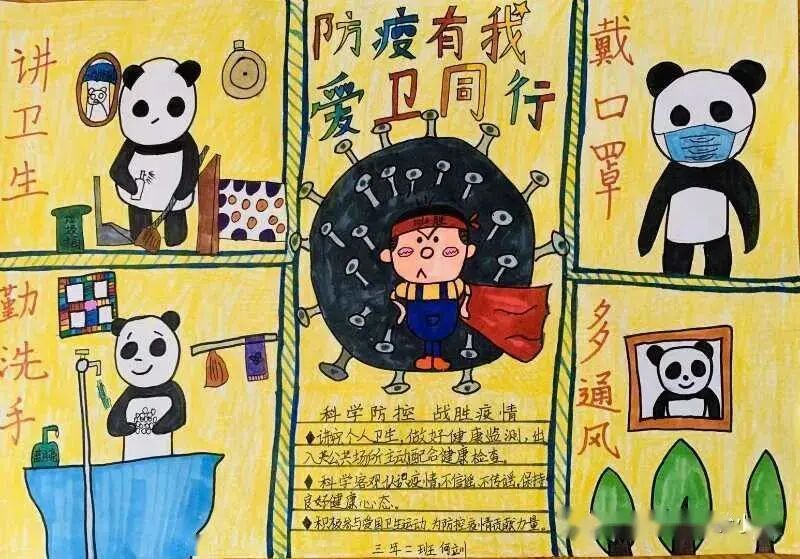 防疫有我
爱卫同行
讲卫生
垃圾桶
勤洗手
戴口罩
多通风
必胜
科学防控 战胜疫情
◆讲究个人卫生,做好健康监测,出
入公共场所主动配合健康检查。
◆科学客观认识疫情,不信谣,不传谣,保持
良好健康心态。
◆积极参与爱国卫生运动,为防控疫情贡献力量。
三年二班